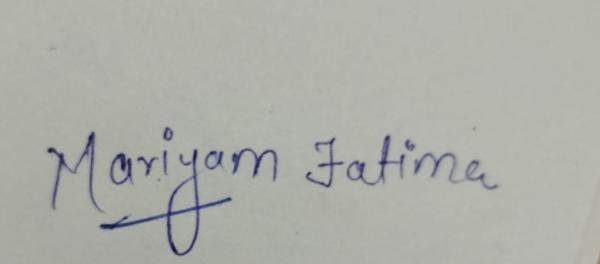 Mariyam Fatima